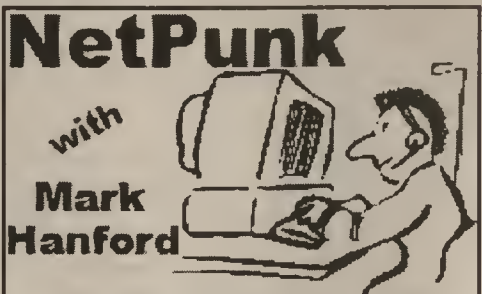 NetPunk
with
Mark
Hanford